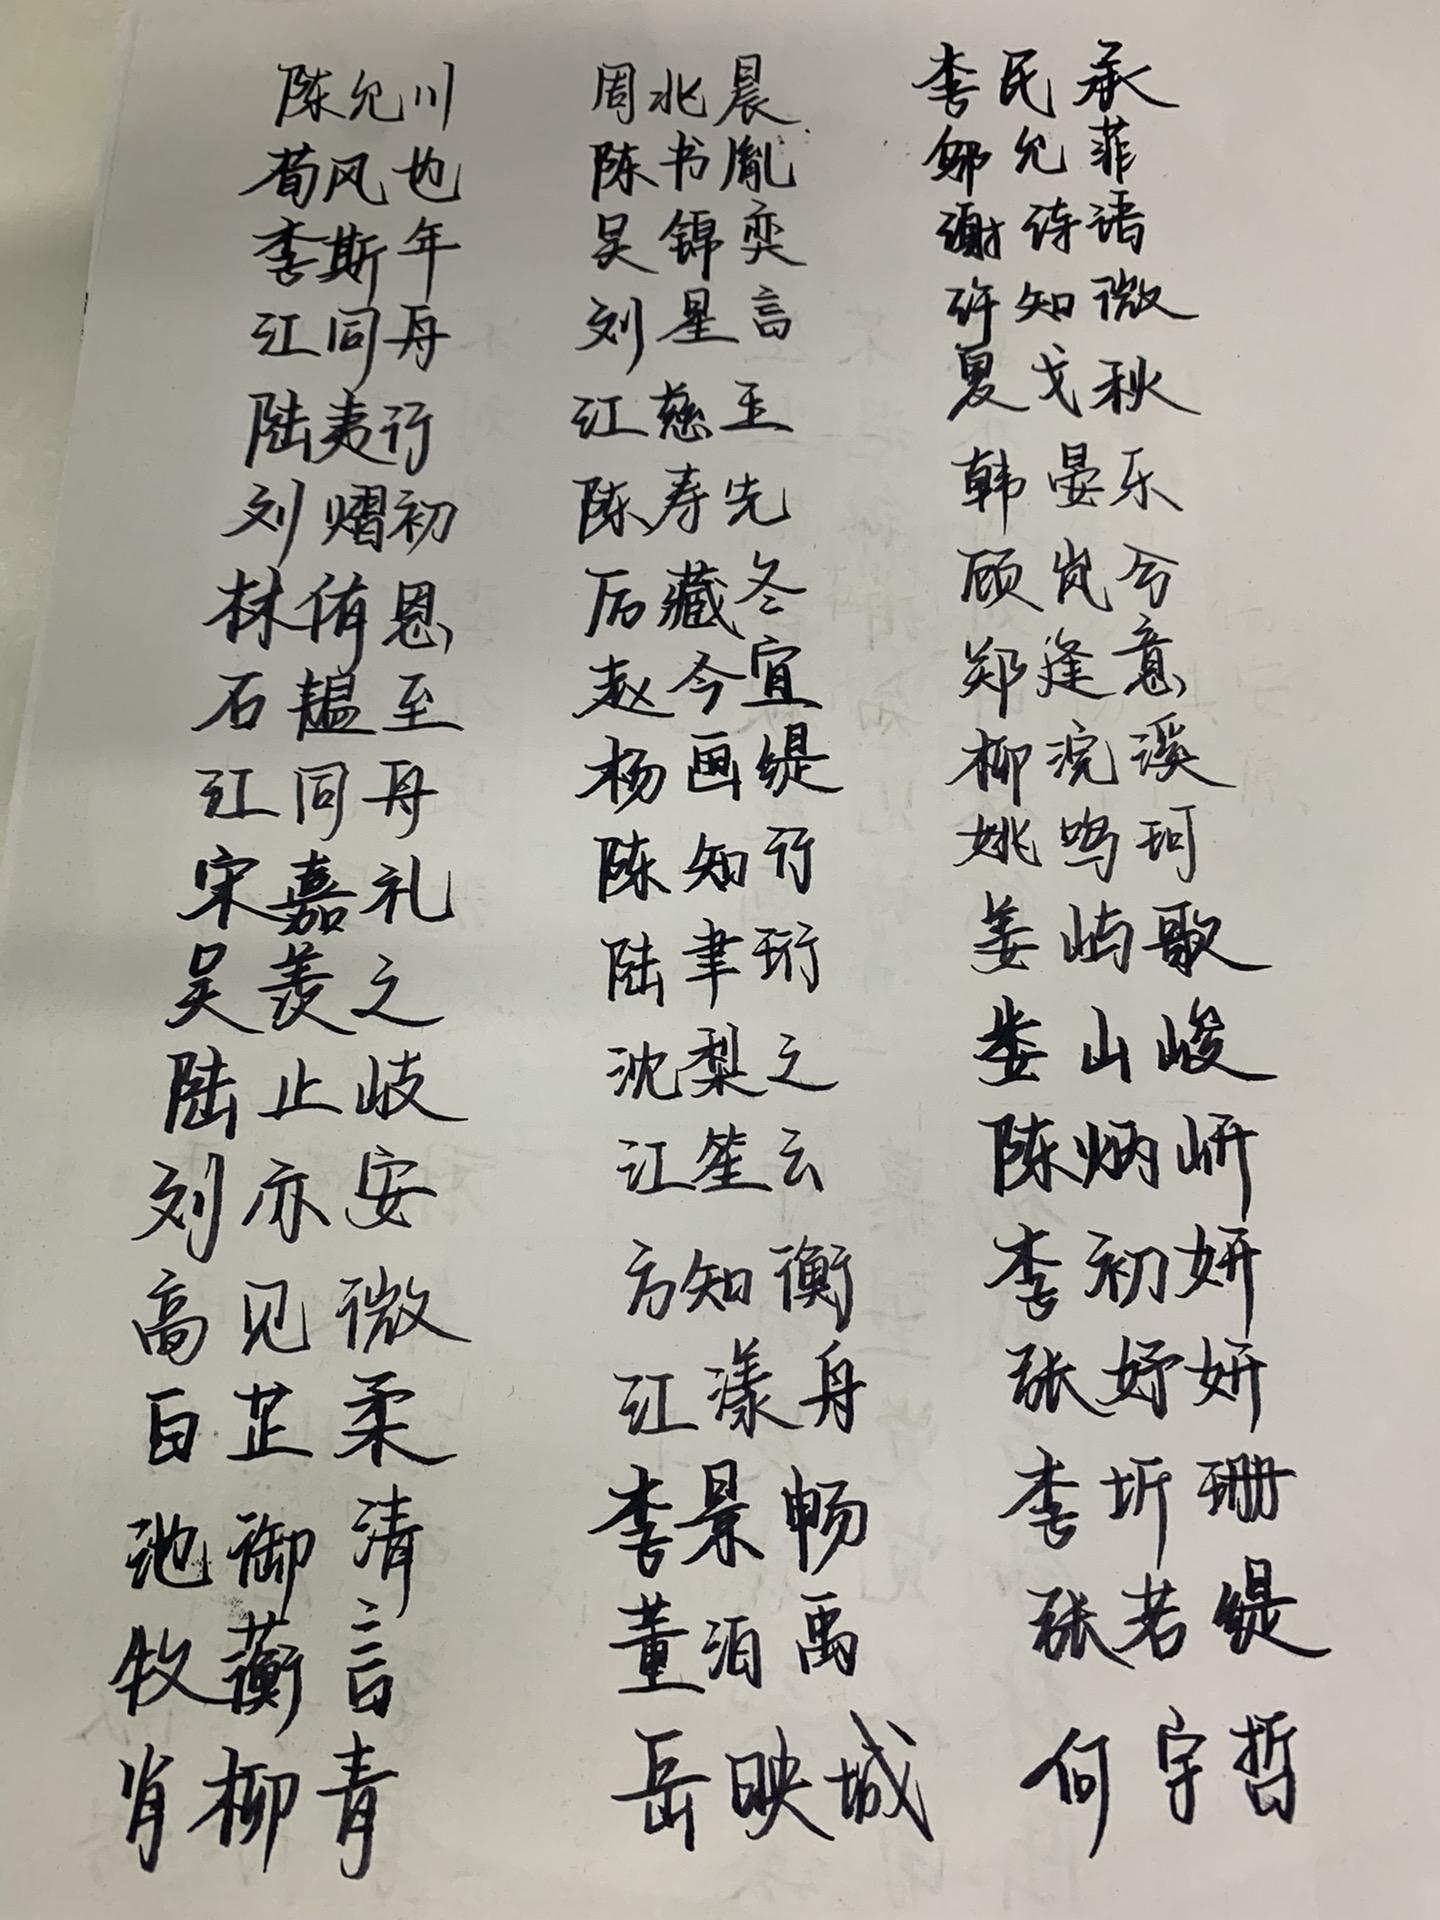 陈允川
荀风也
李斯年
江同舟
陆夷行
刘熠初
林侑恩
石韫至
江同舟
宋嘉礼
吴羡之
陆止岐
刘亦安
高见微
白芷柔
池御清
牧蘅言
肖柳青
周北晨
陈书胤
吴锦奕
刘星言
江慈玉
陈寿先
厉藏冬
赵今宜
杨画缇
陈知行
陆聿珩
沈梨之
江笙云
方知衡
江漾舟
李景畅
董泊禹
岳映城
李民承
邹允菲
谢诗语
许知微
夏戈秋
韩晏乐
顾岚兮
郑逢意
柳浣溪
姚鸣珂
姜屿歌
娄山峻
陈炳岍
李初妍
张妤妍
李圻珊
张若缇
何宇哲